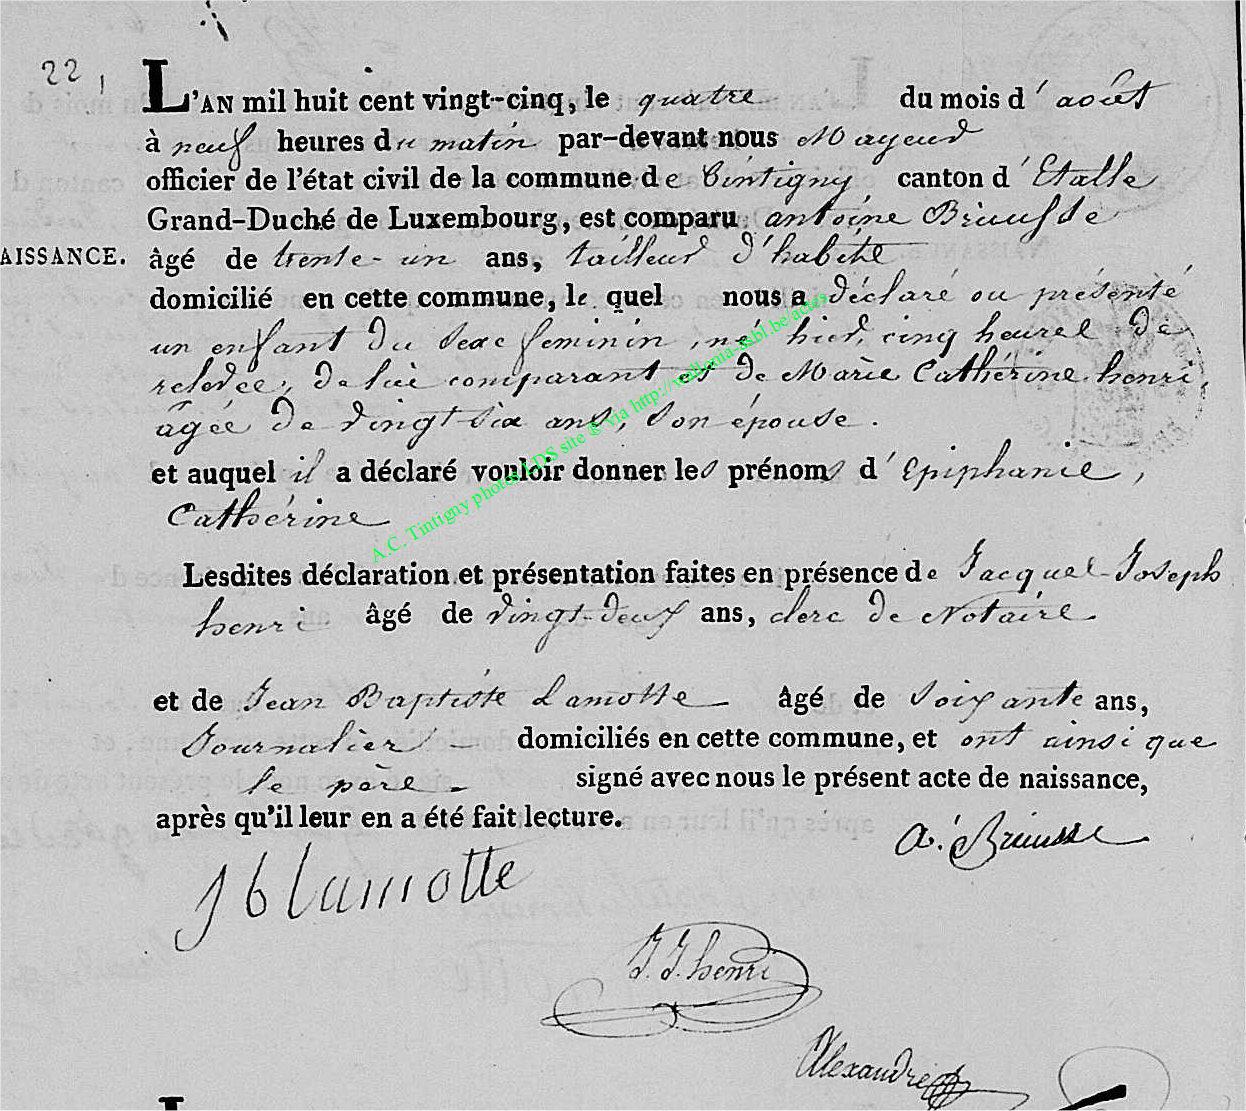 22,
L'AN mil huit cent vingt-cinq, le quatre du mois d'août
à neuf heures du matin par-devant nous Mayeur
officier de l'état civil de la commune de Tintigny canton d'Etalle
Grand-Duché de Luxembourg, est comparu antoine
AISSANCE. âgé de trente-un ans, tailleur d'habits
domicilié en cette commune, le quel nous a déclaré ou présenté
un enfant du sexe feminin, né hier, cinq heures de
relevée, de lui comparant et de Marie Cathérine henri,
âgée de vingt six ans, son épouse.
et auquel il a déclaré vouloir donner les prénoms d'Epiphanie,
Cathérine
Lesdites déclaration et présentation faites en présence de Jacques-Joseph
henri âgé de vingt-deux ans, clerc de Notaire
et de Jean Baptiste Lamotte âgé de soixante ans,
Journalier domiciliés en cette commune, et ont ainsi que
le père signé avec nous le présent acte de naissance,
après qu'il leur en a été fait lecture.
a. Briusse
J b lamotte
J. J. henri
Alexandre
A.C. Tintigny photos LDS site @ via http://wallonia-asbl.be/actes